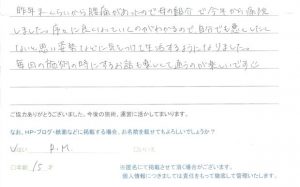 昨年末くらいから腰痛があったので母の紹介で今年から通院
しました。序々に良くなっていくのがわかるので、自分でも悪くしたく
ないと思い姿勢などに気をつけて生活するようになりました。
毎回の施術の時にするお話も楽しくて通うのが楽しいです☺
ご協力ありがとうございました。今後の施術、運営に活かしてまいります。
なお、HP・ブログ・紙面などに掲載する場合、お名前を載せてもよろしいでしょうか?
はい R.M. いいえ
年齢 15 才
※匿名にて掲載させて頂く場合がございます。
個人情報につきましては責任をもって徹底して管理いたします。